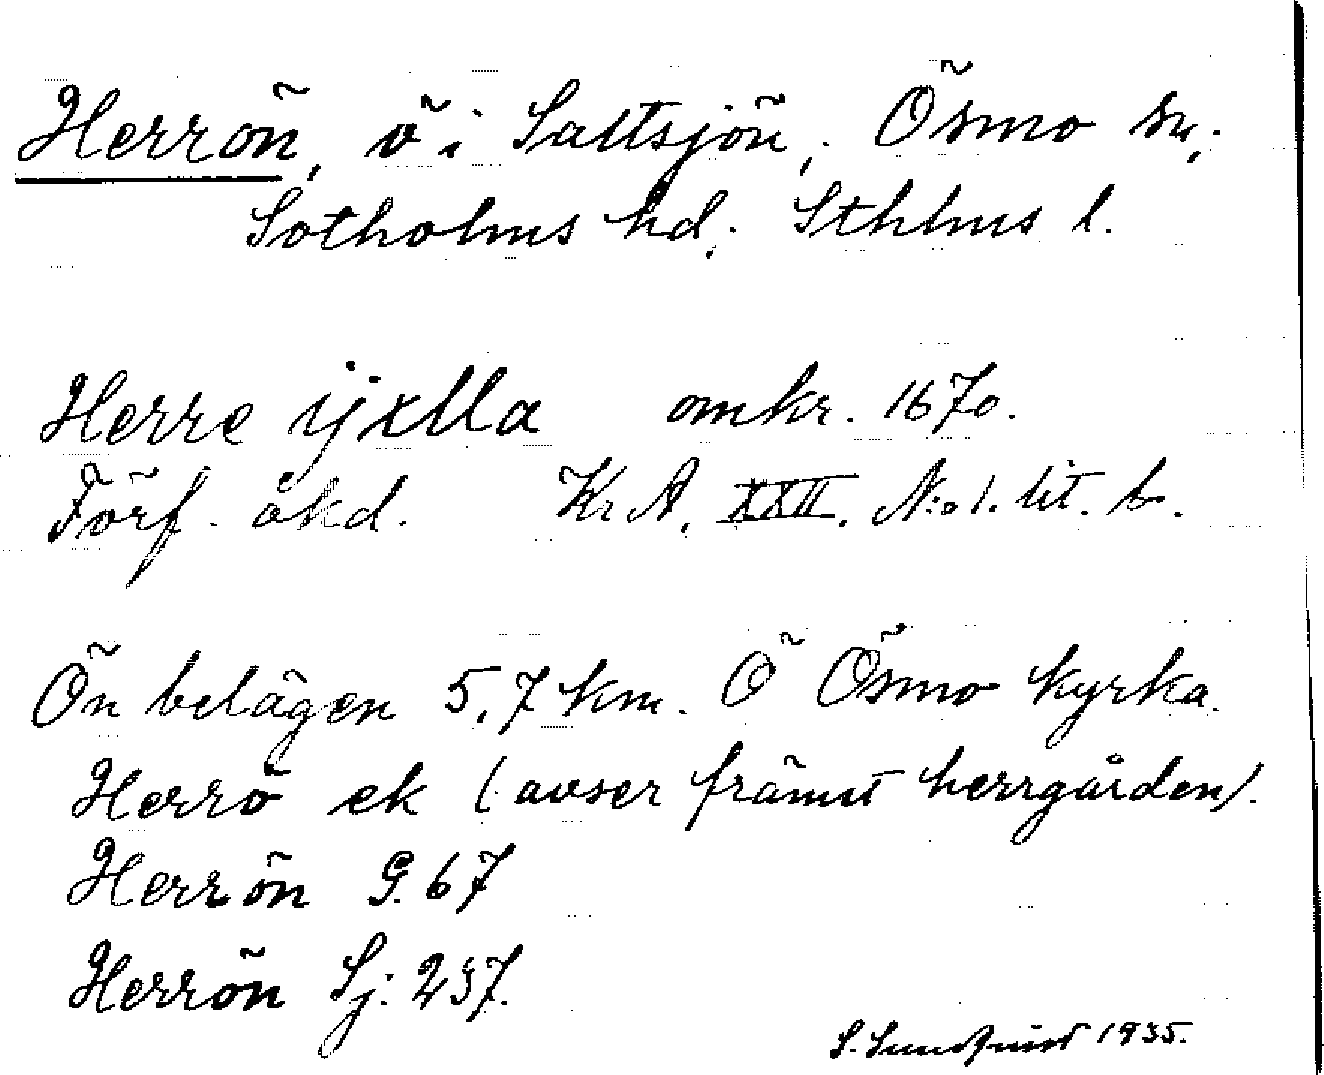 Herrön, ö i Saltsjön, Ösmo sn,
Sotholms hd, Sthlms l.
Herre ijxlla omkr. 1670.
Förf. okd. Kr A, XXII. N:o 1. lit. b.
Ön belägen 5,7 km. Ö Ösmo kyrka.
Herrö ek (avser främst herrgården).
Herrön G. 67
Herrön Sj: 237.
S. Sundquist 1935.